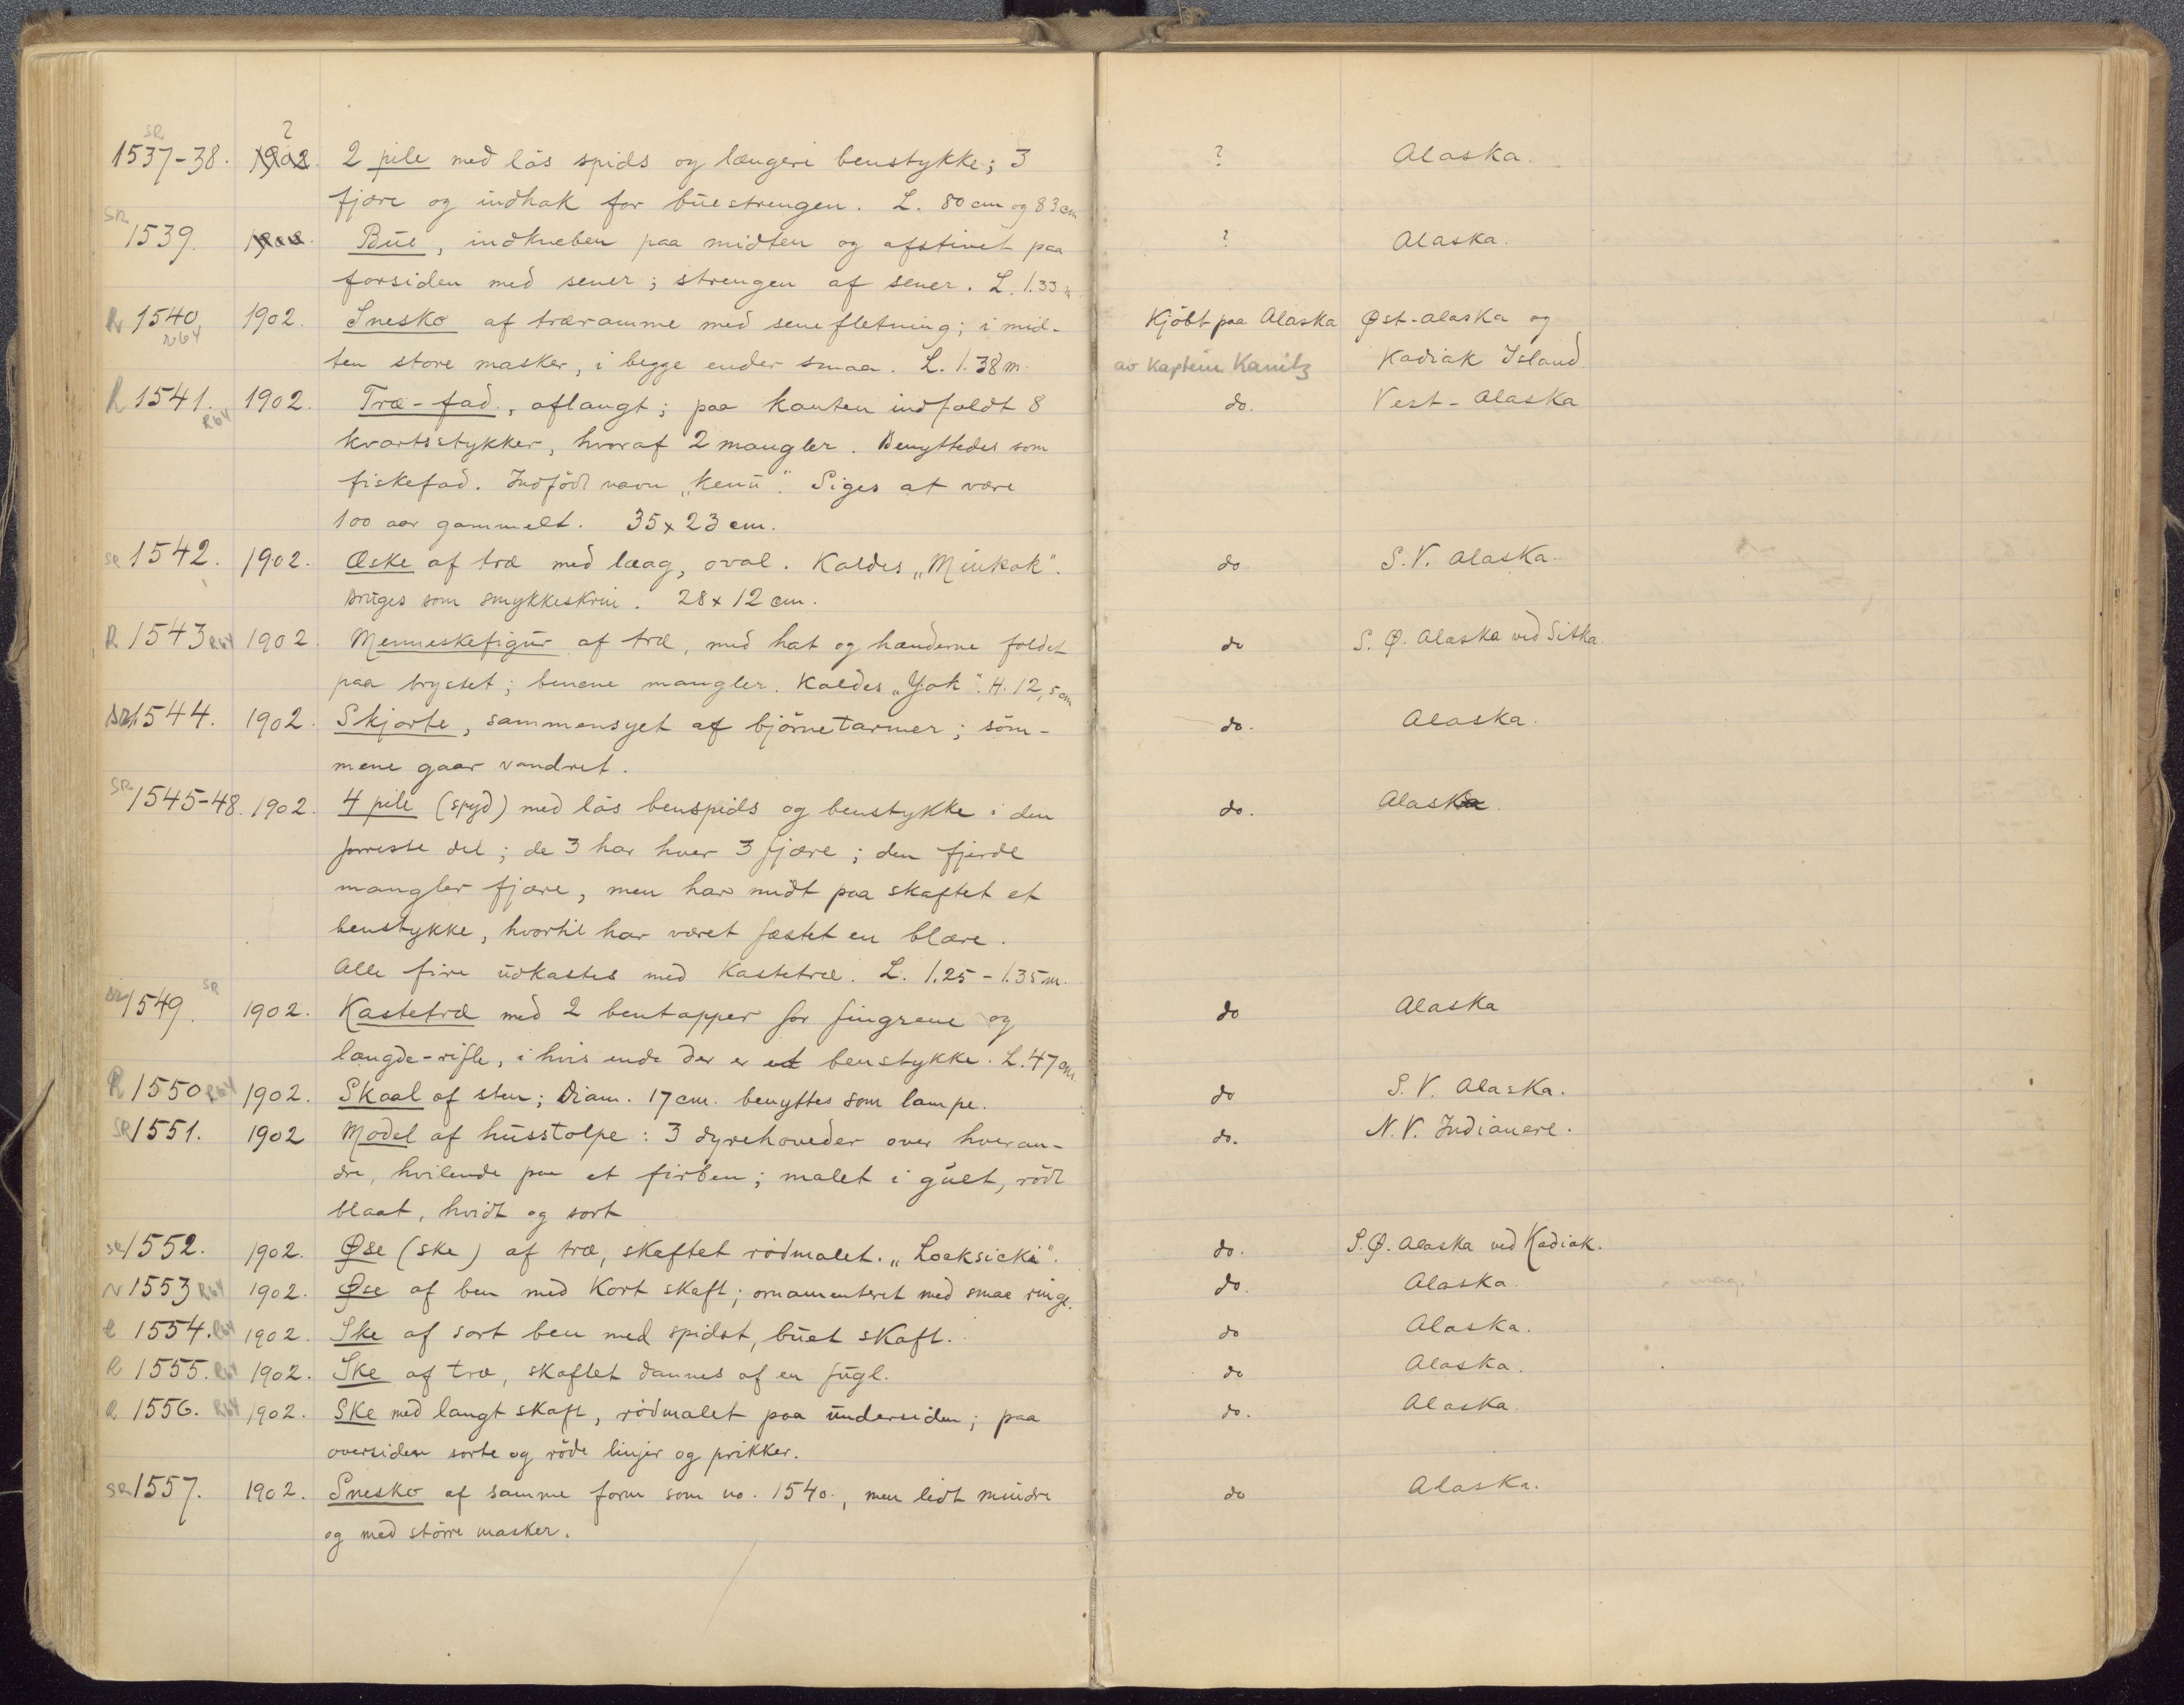 SR ?
1537-38. 1902. 2 pile med lös spids og længere benstykke; 3 ? Alaska.
fjære og indhak for buestrengen. L. 80 cm og 83 cm
SR 1539. 1902. Bue, indkneben paa midten og afstivet paa ? Alaska.
forsiden med sener; strengen af sener. L. 1.33 m
R 1540 1902. Snesko af træramme med senefletning; i mid- Kjöbt paa Alaska Øst-Alaska og
R64 ten store masker, i begge ender smaa. L. 1.38 m. av Kaptein Kanitz Kadiak Island.
R 1541. 1902. Træ-fad, aflangt; paa kanten indfældt 8 do. Vest-Alaska
R64 kvartsstykker, hvoraf 2 mangler. Benyttedes som
fiskefad. Indfödt navn „Kenü". Siges at være
100 aar gammelt. 35 x 23 cm.
SR 1542. 1902. Æske af træ med laag, oval. Kaldes „Minkok". do S.V. Alaska.
Bruges som smykkeskrin. 28 x 12 cm.
R 1543 R64 1902. Menneskefigur af træ, med hat og hænderne foldet do S. Ø. Alaska ved Sitka.
paa brystet; benene mangler. Kaldes „Yak". H. 12,5 cm
SR 1544. 1902. Skjorte, sammensyet af björnetarmer; söm- do. Alaska.
mene gaar vandret.
SR 1545-48. 1902. 4 pile (spyd) med lös benspids og benstykke i den do. Alaska.
forreste del; de 3 har hver 3 fjære; den fjerde
mangler fjære, men har midt paa skaftet et
benstykke, hvortil har været fæstet en blære.
Alle fire udkastes med Kastetræ. L. 1.25 - 1.35 m.
SR 1549. SR 1902. Kastetræ med 2 bentapper for fingrene og do Alaska
længde-rifle, i hvis ende der er et benstykke. L. 47 cm
R 1550 R64 1902. Skaal af sten; Diam. 17 cm. benyttes som lampe. do S.V. Alaska.
SR 1551. 1902 Model af husstolpe: 3 dyrehoveder over hveran- do. N.V. Indianere.
dre, hvilende paa et firben; malet i gult, rödt
blaat, hvidt og sort
SR 1552. 1902. Øse (ske) af træ, skaftet rödmalet. „Locksicki". do. S.Ø. Alaska ved Kadiak.
R 1553 R64 1902. Øse af ben med Kort skaft; ornamenteret med smaa ringe. do. Alaska.
R 1554. R64 1902. Ske af sort ben med spidst, buet skaft. do Alaska.
R 1555. R64 1902. Ske af træ, skaftet dannes af en fugl. do Alaska.
R 1556. R64 1902. Ske med langt skaft, rödmalet paa undersiden; paa do. Alaska.
oversiden sorte og röde linjer og prikker.
SR 1557. 1902. Snesko af samme form som no. 1540., men lidt mindre do Alaska.
og med större masker.